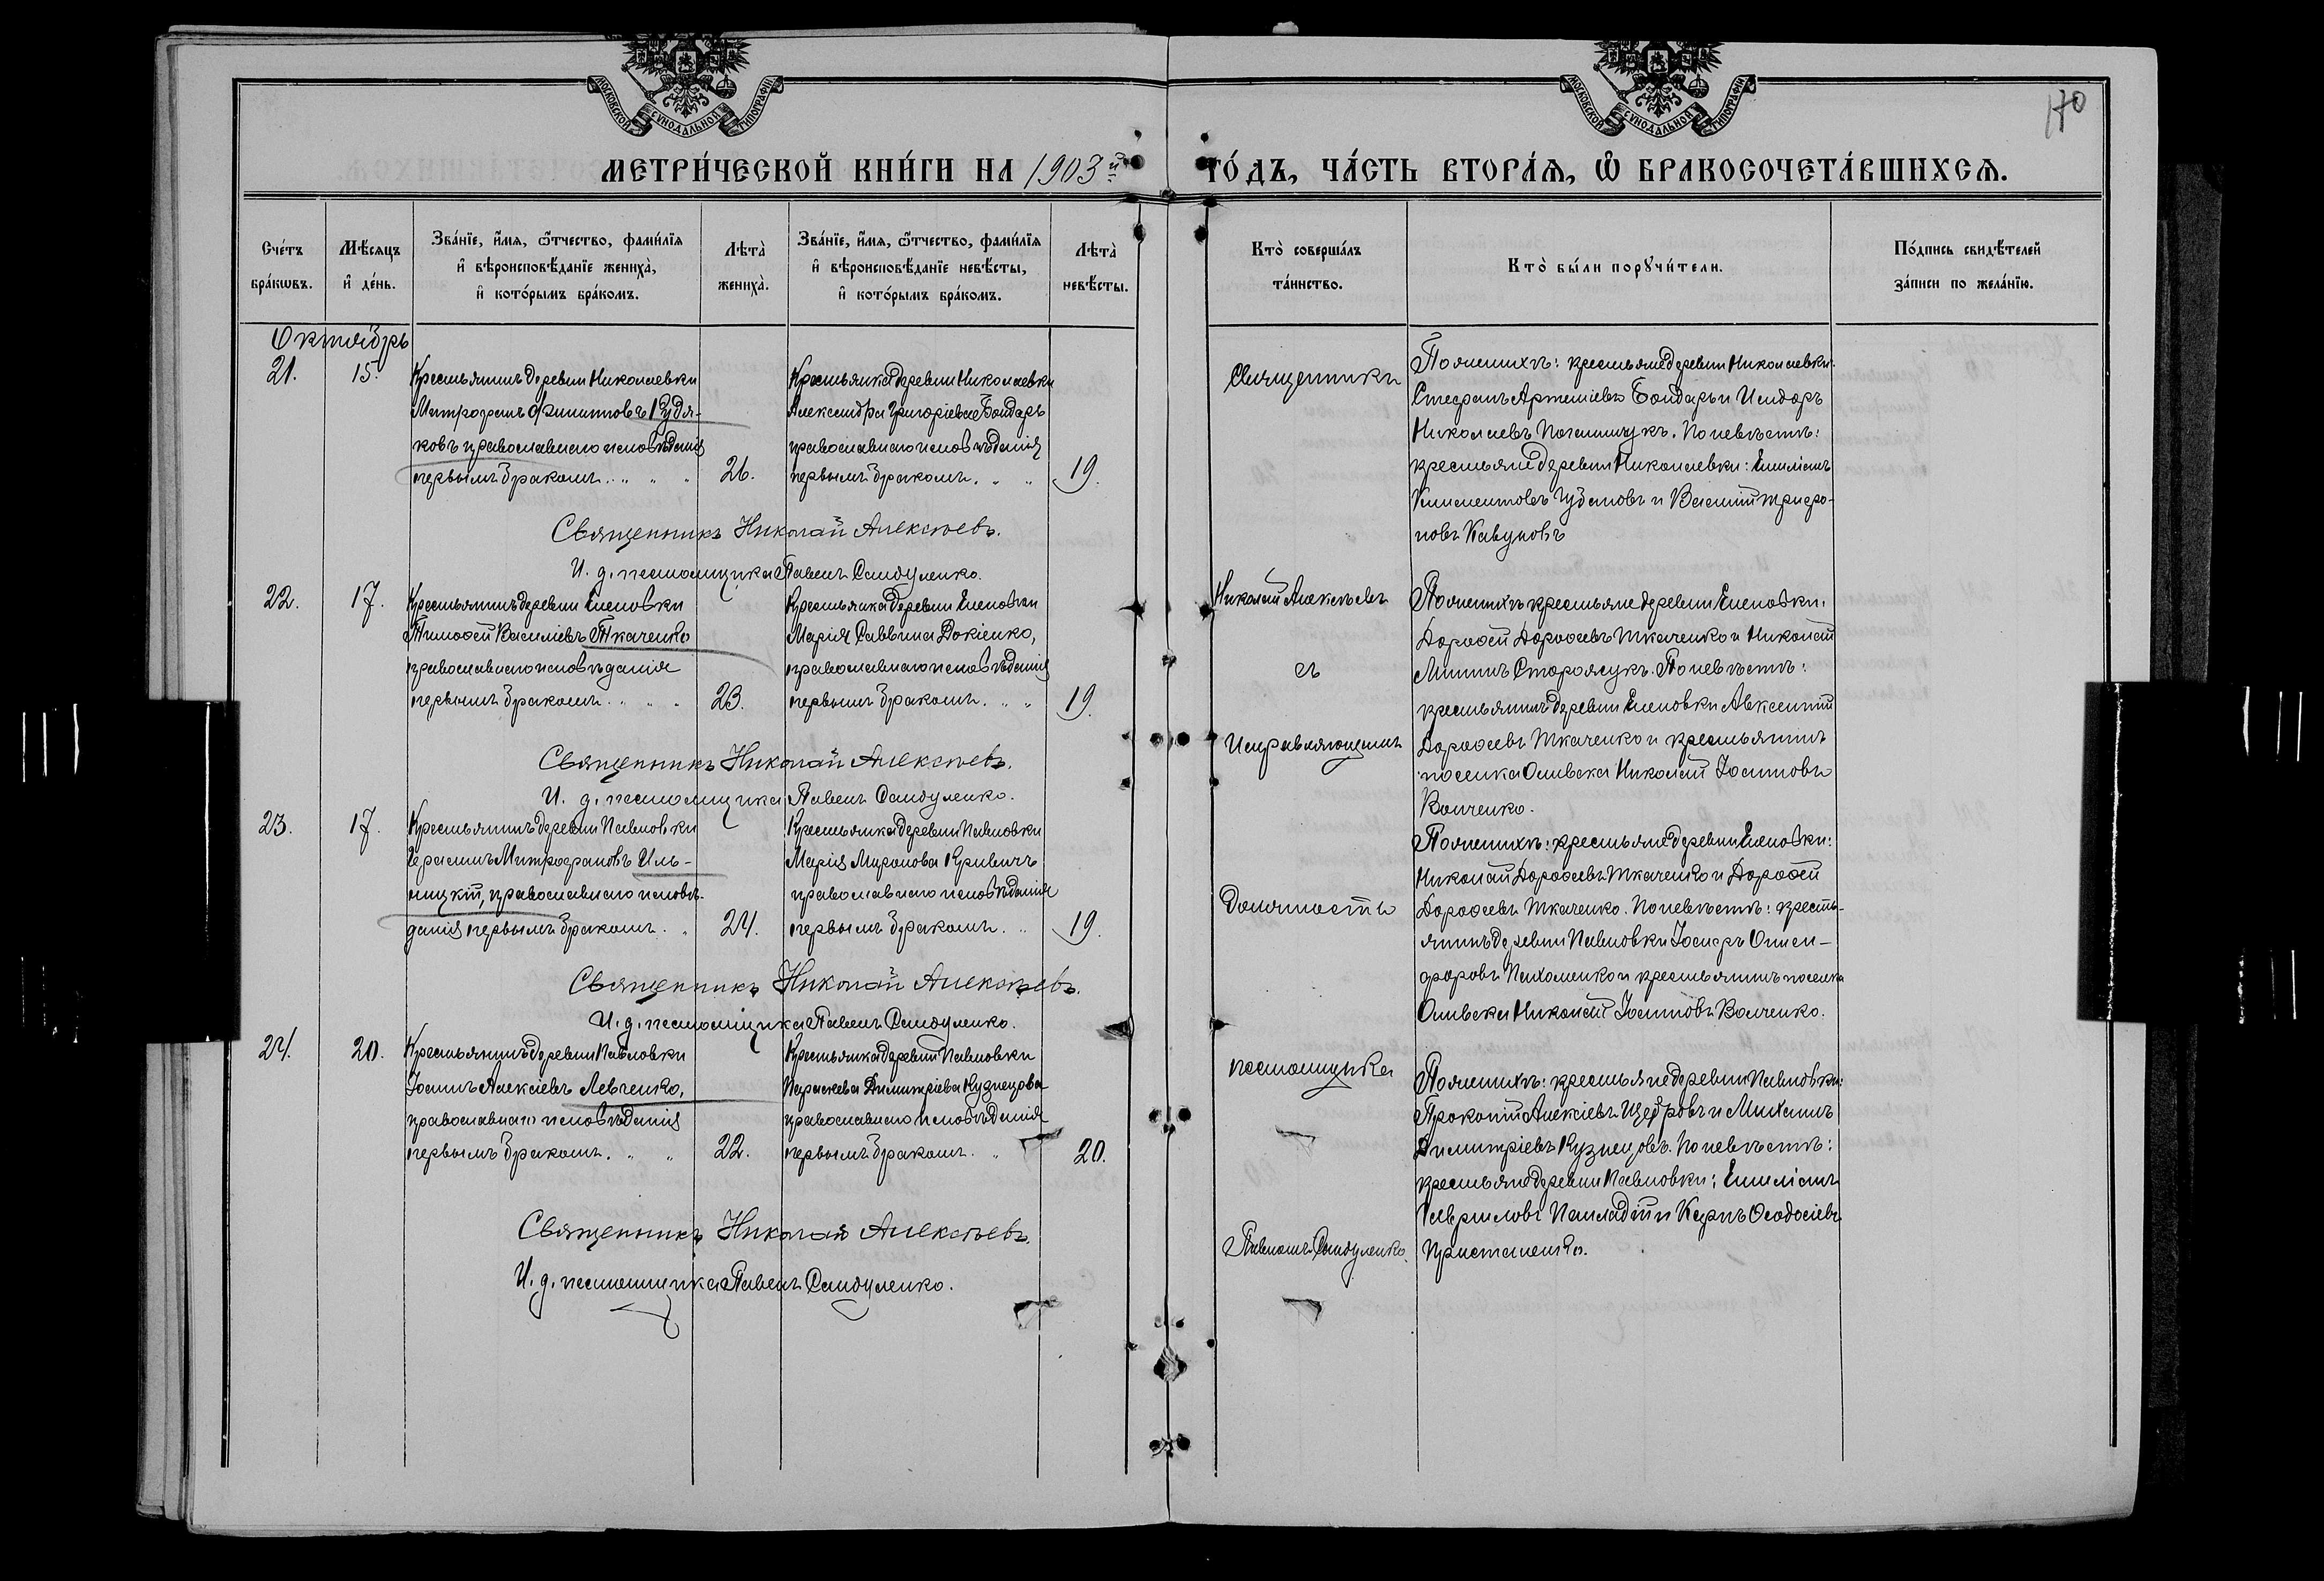 МОСКОВСКОЙ СѴНОДАЛЬНОЙ ТИПОГРАФІИ
МЕТРИ́ЧЕСКОЙ КНИ́ГИ НА 1903й
Сче́тъ бра́кѡвъ.
Мѣ́сяцъ и҆ де́нь.
Зва́нїе, и҆́мѧ, ѻ҆́тчество, фами́лїѧ
и҆ вѣроисповѣ́данїе жениха̀,
и҆ кото́рымъ бра́комъ.
Лѣта̀ жениха̀.
Зва́нїе, и҆́мѧ, ѻ҆́тчество, фами́лїѧ
и҆ вѣроисповѣ́данїе невѣ́сты,
и҆ кото́рымъ бра́комъ.
Лѣта̀ невѣ́сты.
Октябрь
21. 15.
Крестьянинъ деревни Николаевки
Митрофанъ Филиповъ Гудзи-
ковъ православнаго исповѣданія
первымъ бракомъ. 26.
Крестьянка деревни Николаевки
Александра Григоріева Бондарь
православнаго исповѣданія
первымъ бракомъ. 19.
Священникъ Николай Алексѣевъ.
И. д. псаломщика Павелъ Сандуленко.
22. 17.
Крестьянинъ деревни Еленовки
Тимоѳей Василіевъ Ткаченко
православнаго исповѣданія
первымъ бракомъ. 23.
Крестьянка деревни Еленовки
Марія Саввина Докіенко,
православнаго исповѣданія
первымъ бракомъ. 19.
Священникъ Николай Алексѣевъ.
И. д. псаломщика Павелъ Сандуленко.
23. 17.
Крестьянинъ деревни Павловки
Герасимъ Митрофановъ Иль-
ницкій, православнаго исповѣ-
данія первымъ бракомъ. 24.
Крестьянка деревни Павловки
Марія Миронова Кривичъ
православнаго исповѣданія
первымъ бракомъ. 19.
Священникъ Николай Алексѣевъ.
И. д. псаломщика Павелъ Сандуленко.
24. 20.
Крестьянинъ деревни Павловки
Іоаннъ Алексіевъ Левченко,
православнаго исповѣданія
первымъ бракомъ. 22.
Крестьянка деревни Павловки
Параскева Димитріева Кузнецова
православнаго исповѣданія
первымъ бракомъ. 20.
Священникъ Николай Алексѣевъ.
И. д. псаломщика Павелъ Сандуленко.
МОСКОВСКОЙ СѴНОДАЛЬНОЙ ТИПОГРАФІИ
170
ГО́ДЪ, ЧА́СТЬ ВТОРА́Ѧ, Ѡ҆ БРАКОСОЧЕТА́ВШИХСѦ.
Кто̀ соверша́лъ та́инство.
Кто̀ бы́ли порꙋчи́тели.
По́дпись свидѣ́телей
за́писи по жела́нїю.
Священникъ
Николай Алексѣевъ
съ
Исправляющимъ
должность
псаломщика
Павломъ Сандуленко.
По женихѣ: крестьяне деревни Николаевки:
Стефанъ Артеміевъ Бондарь и Исидоръ
Николаевъ По невѣстѣ:
крестьяне деревни Николаевки: Емиліанъ
Климентовъ и Василій Трифо-
новъ Кавуновъ
По женихѣ крестьяне деревни Еленовки:
Дороѳей Дороѳеевъ Ткаченко и Николай
По невѣстѣ:
крестьянинъ деревни Еленовки Авксентій
Дороѳеевъ Ткаченко и крестьянинъ
поселка Николай Іоанновъ
Волченко.
По женихѣ: крестьяне деревни Еленовки:
Николай Дороѳеевъ Ткаченко и Дороѳей
Дороѳеевъ Ткаченко. По невѣстѣ: кресть-
янинъ деревни Павловки Іосифъ Ониси-
форовъ Пахоменко и крестьянинъ поселка
Николай Іоанновъ Волченко.
По женихѣ: крестьяне деревни Павловки:
Прокопій Алексіевъ и Михаилъ
Димитріевъ Кузнецовъ. По невѣстѣ:
крестьяне деревни Павловки: Емиліанъ
Гавриловъ Палладій и Карпъ Ѳеодосіевъ